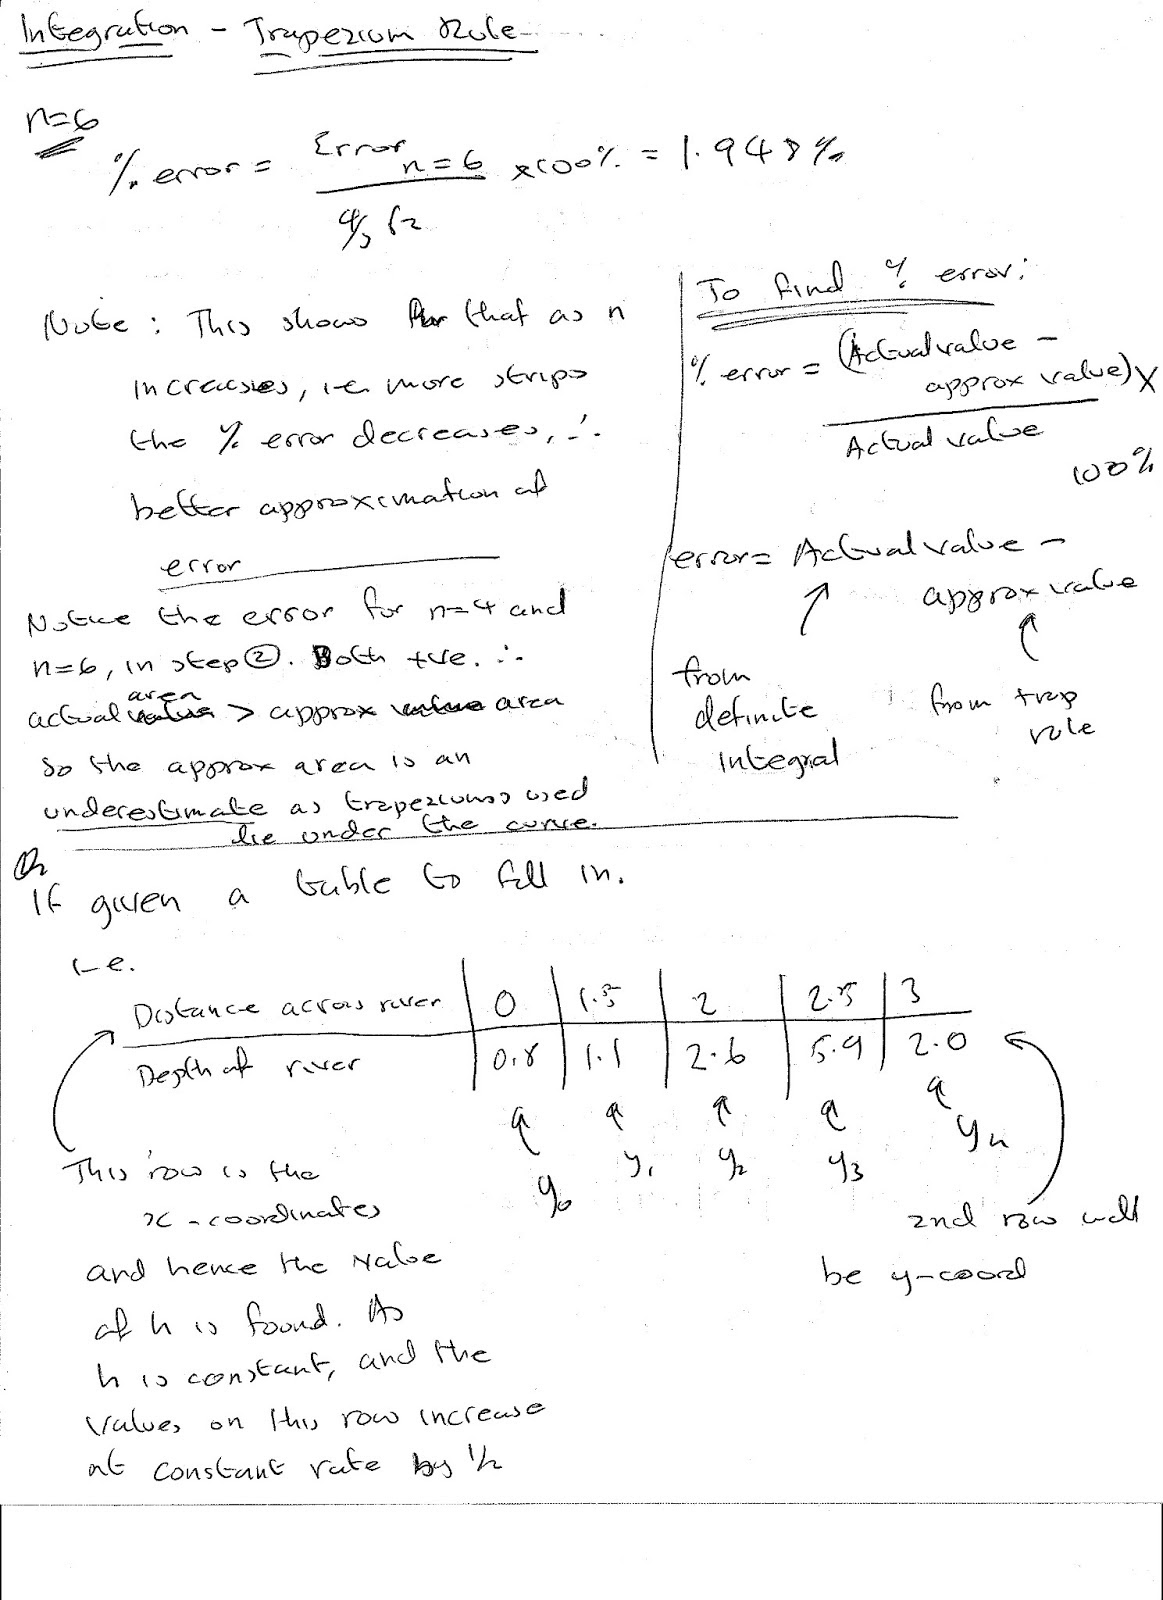 Integration - Trapezium Rule
n=6
% error = Error n=6 / 4/3 √2 × 100% = 1.948%
Note : This shows that as n
increases, i.e. more strips
the % error decreases, ∴
better approximation of
error
Notice the error for n=4 and
n=6, in step ②. Both +ve. ∴
actual area > approx area
so the approx area is an
underestimate as trapeziums used
lie under the curve.
To find % error:
% error = (Actual value -
approx value) ×
Actual value
100%
error = Actual value -
approx value
from
definite
integral
from trap
rule
Or
If given a table to fill in.
i.e.
Distance across river | 0 | 1.5 | 2 | 2.5 | 3
Depth of river | 0.8 | 1.1 | 2.6 | 5.9 | 2.0
y0 y1 y2 y3 yn
This row is the
x-coordinates
and hence the value
of h is found. As
h is constant, and the
values on this row increase
at constant rate by 1/2
2nd row will
be y-coord